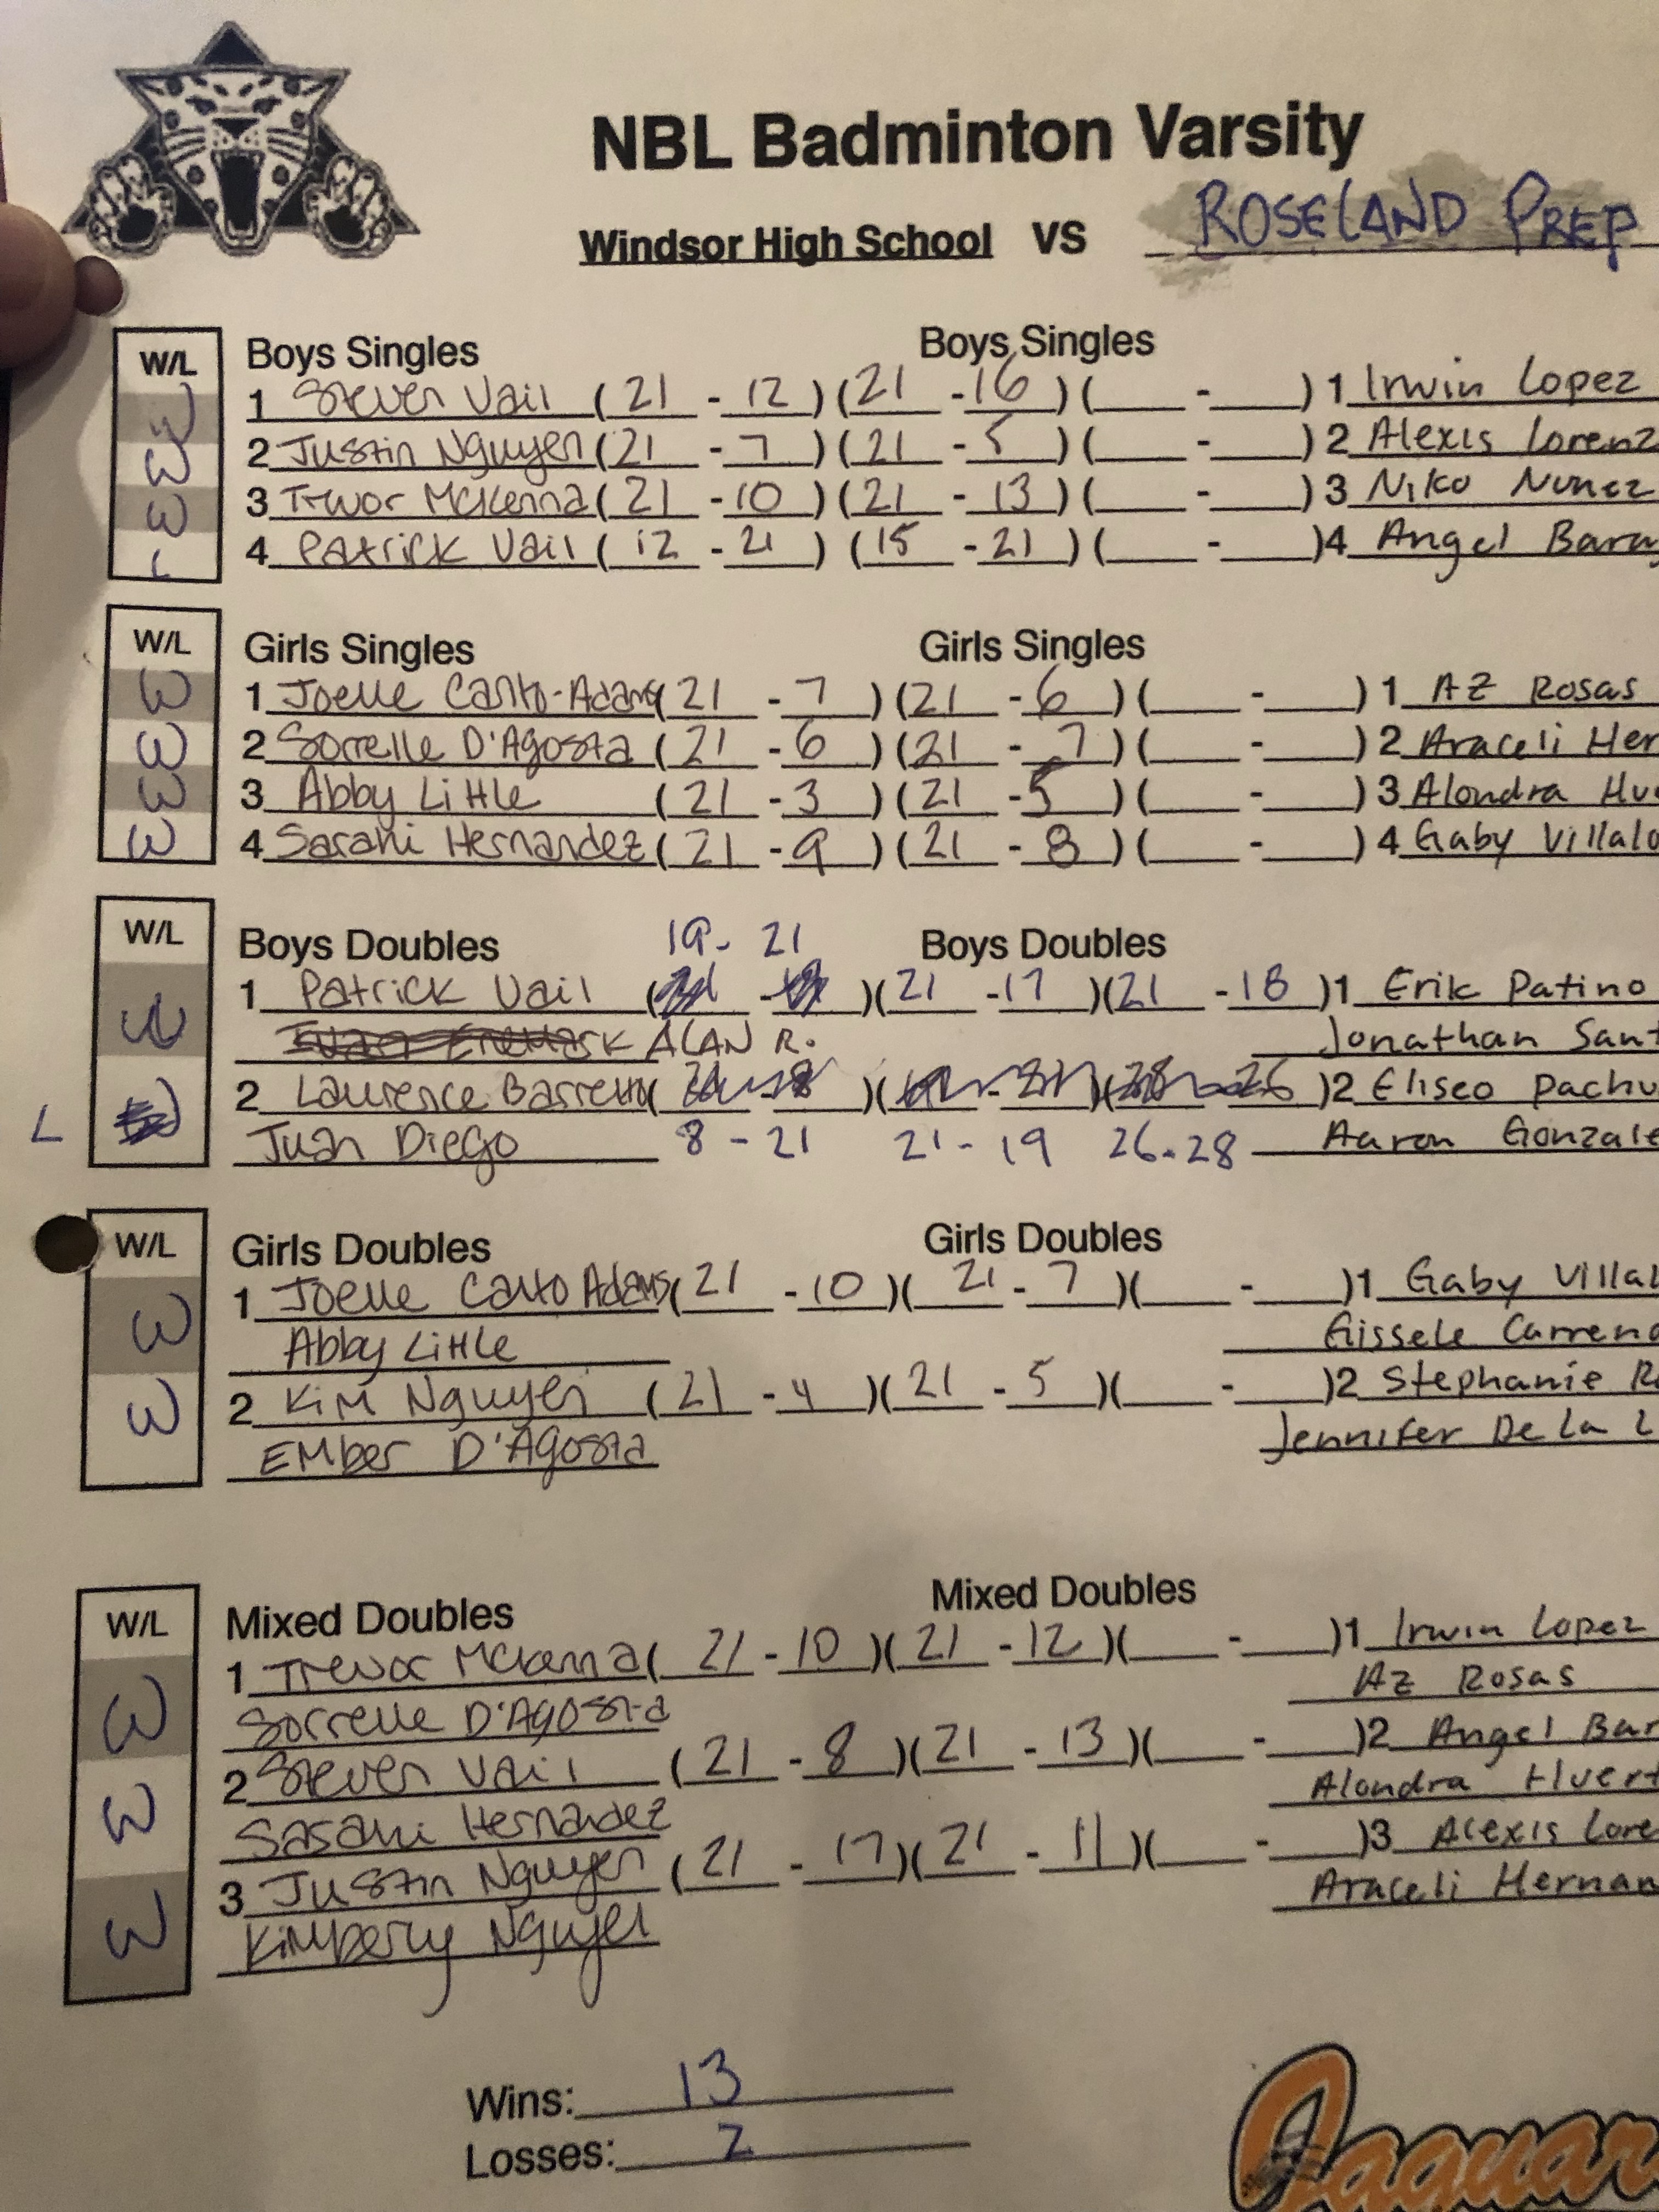 NBL Badminton Varsity
Windsor High School VS ROSELAND PREP
W/L Boys Singles Boys Singles
W 1 Steven Vail (21 - 12) (21 - 16) ( - ) 1 Irwin Lopez
W 2 Justin Nguyen (21 - 7) (21 - 5) ( - ) 2 Alexis Lorenz
W 3 Trevor McKenna (21 - 10) (21 - 13) ( - ) 3 Niko Nunez
L 4 Patrick Vail (12 - 21) (15 - 21) ( - ) 4 Angel Bara
W/L Girls Singles Girls Singles
W 1 Joelle Canto-Adams (21 - 7) (21 - 6) ( - ) 1 AZ Rosas
W 2 Sorrelle D'Agosta (21 - 6) (21 - 7) ( - ) 2 Araceli Her
W 3 Abby Little (21 - 3) (21 - 5) ( - ) 3 Alondra Hue
W 4 Sarahi Hernandez (21 - 9) (21 - 8) ( - ) 4 Gaby Villalo
W/L Boys Doubles 19 - 21 Boys Doubles
1 Patrick Vail ( - ) (21 - 17) (21 - 18) 1 Erik Patino
ALAN R. Jonathan Sant
L 2 Laurence Barretto ( - ) ( - ) ( - 26) 2 Eliseo Pachu
Juan Diego 8 - 21 21 - 19 26 - 28 Aaron Gonzale
W/L Girls Doubles Girls Doubles
W 1 Joelle Canto Adams (21 - 10) (21 - 7) ( - ) 1 Gaby Villal
Abby Little Gissele Carreno
W 2 Kim Nguyen (21 - 4) (21 - 5) ( - ) 2 Stephanie R
Ember D'Agosta Jennifer De La L
W/L Mixed Doubles Mixed Doubles
W 1 Trevor McKenna (21 - 10) (21 - 12) ( - ) 1 Irwin Lopez
Sorrelle D'Agosta AZ Rosas
W 2 Steven Vail (21 - 8) (21 - 13) ( - ) 2 Angel Bar
Sarahi Hernandez Alondra Huert
W 3 Justin Nguyen (21 - 17) (21 - 11) ( - ) 3 Alexis Lore
Kimberly Nguyen Araceli Hernan
Wins: 13
Losses: 2
Jaguar